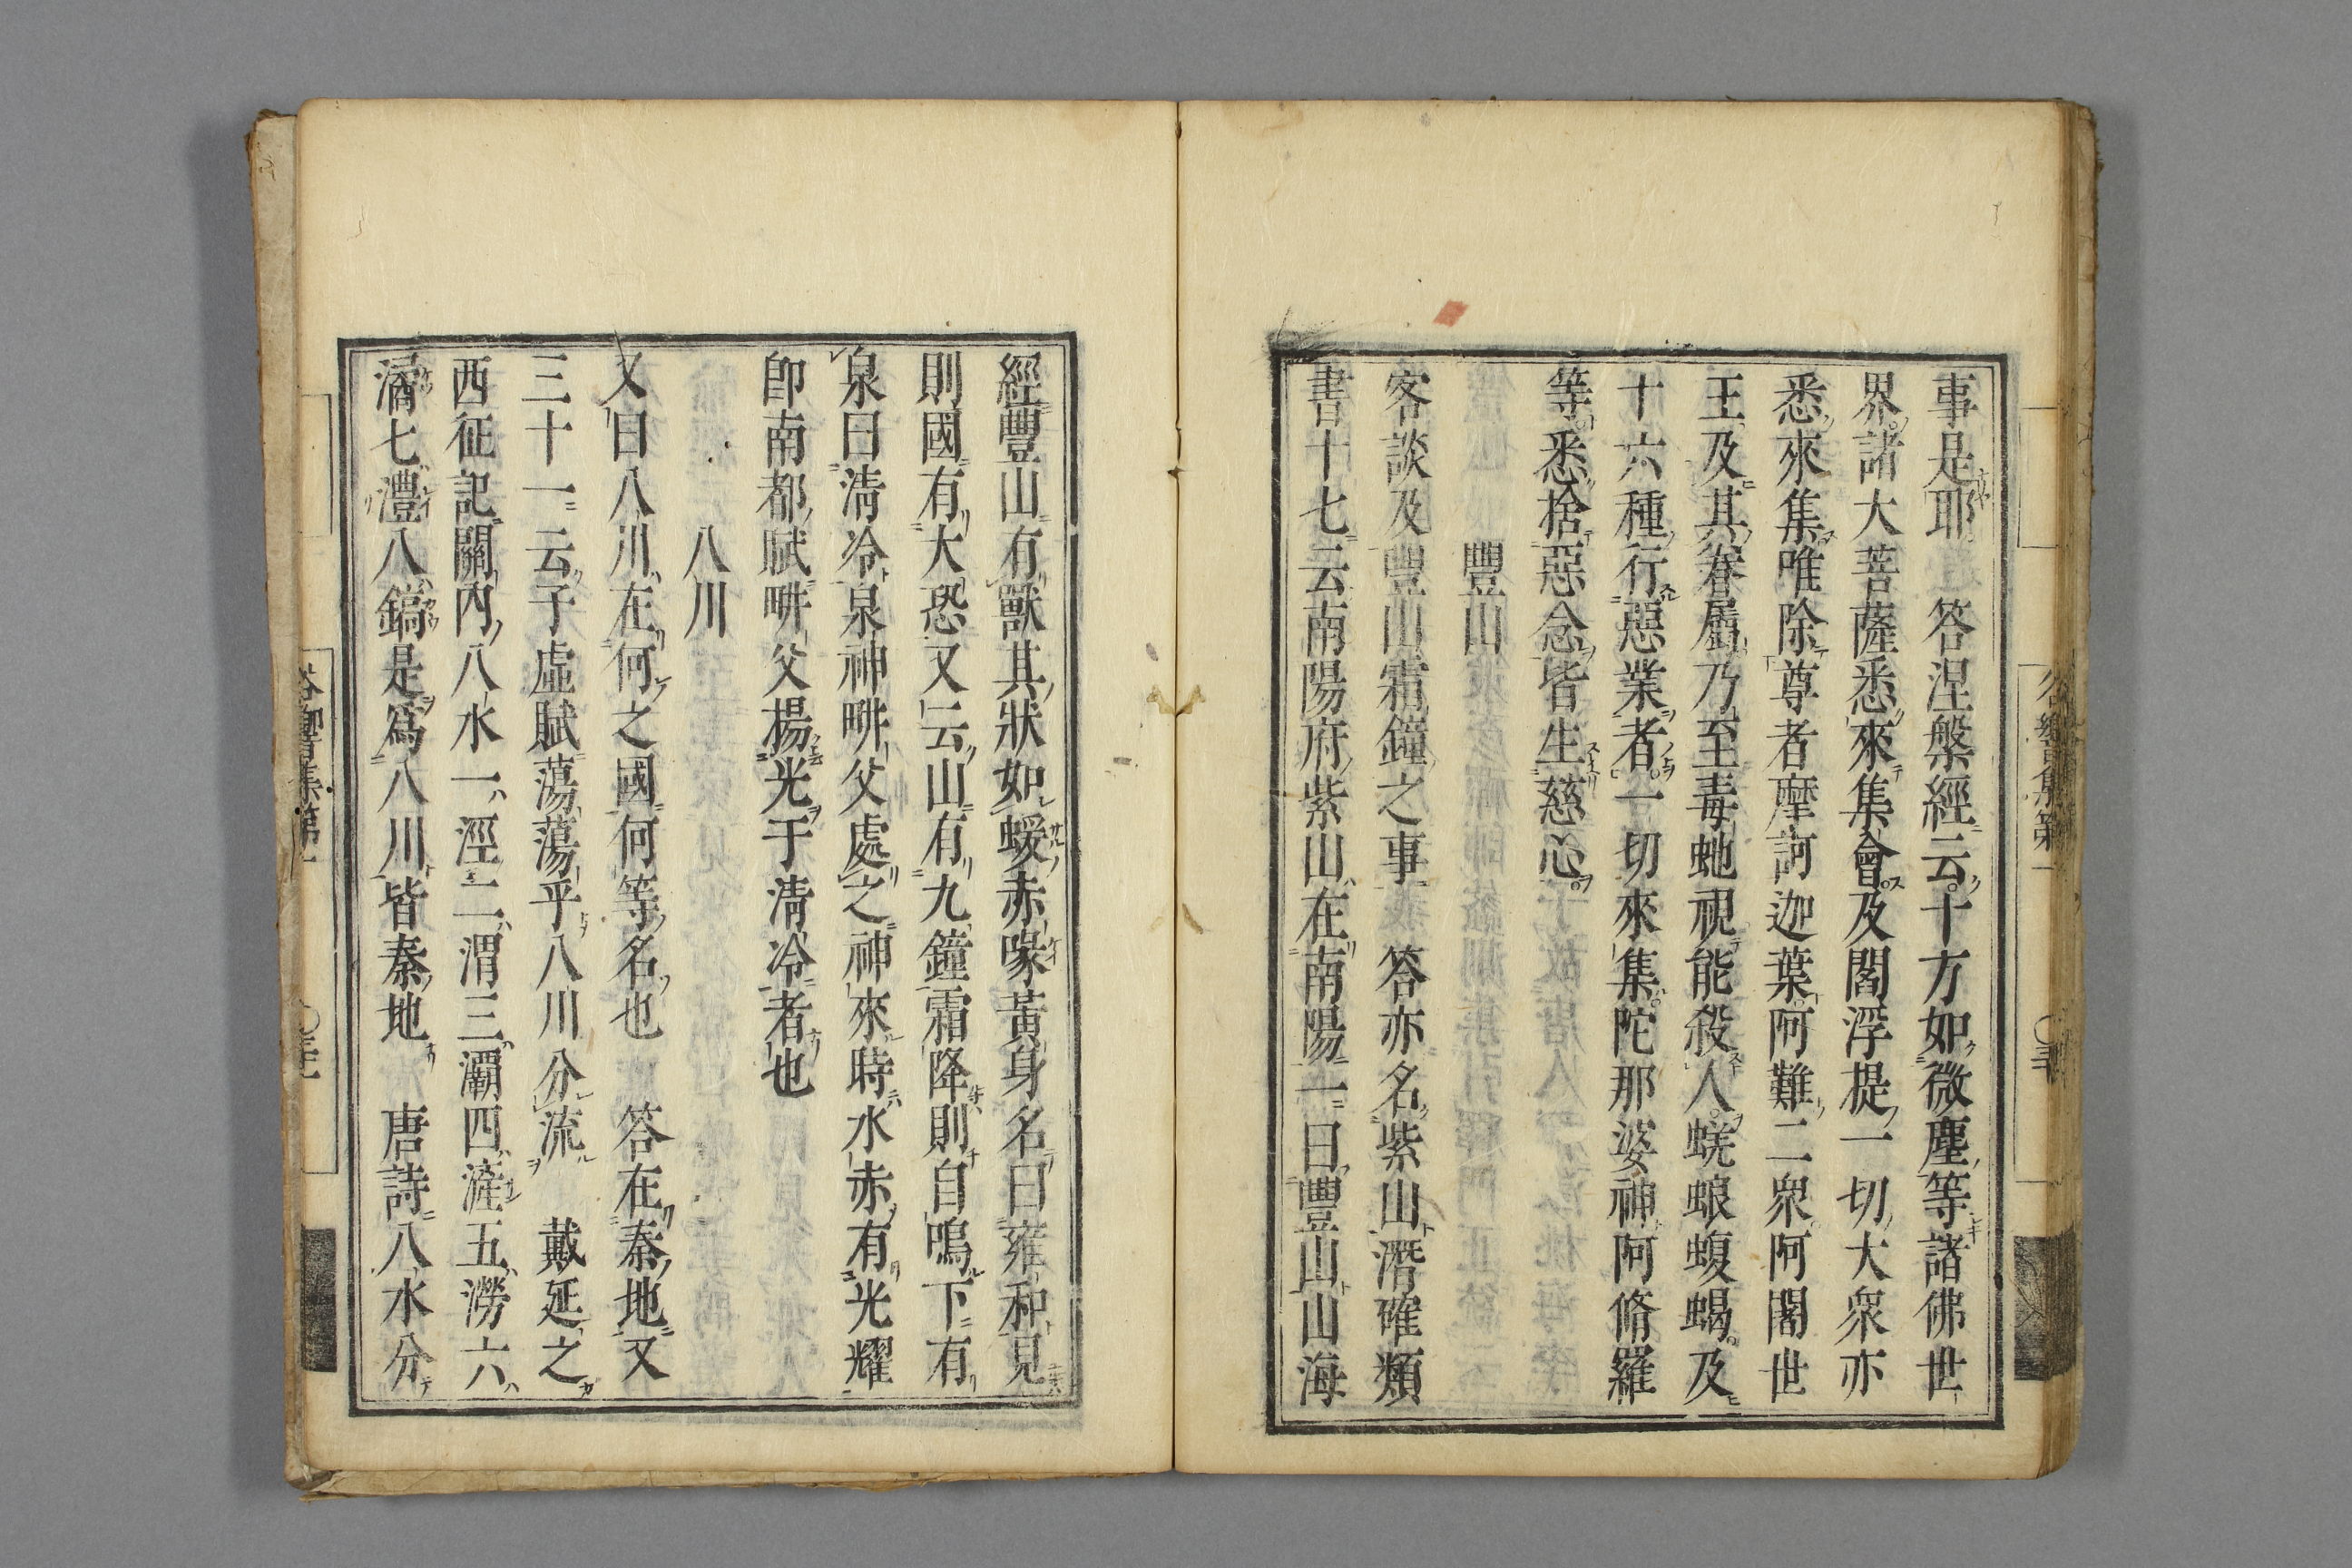 事是耶　答涅槃經云十方如微塵等諸佛世
界諸大菩薩悉來集會及閻浮提一切大衆亦
悉來集唯除尊者摩訶迦葉阿難二衆阿闍世
王及其眷屬乃至毒虵視能殺人蜣蜋蝮蝎及
十六種行惡業者一切來集陀那婆神阿脩羅
等悉捨惡念皆生慈心
豐山
客談及豐山霜鐘之事　答亦名紫山潛確類
書十七云南陽府紫山在南陽一曰豐山山海
經豐山有獸其狀如蝯赤喙黃身名曰雍和見
則國有大恐又云山有九鐘霜降則自鳴下有
泉曰淸冷泉神耕父處之神來時水赤有光耀
卽南都賦耕父揚光于淸冷者也
八川
又曰八川在何之國何等名也　答在秦地又
三十一云子虛賦蕩蕩乎八川分流　戴延之
西征記關內八水一涇二渭三灞四滻五澇六
潏七灃八鎬是爲八川皆秦地　唐詩八水分